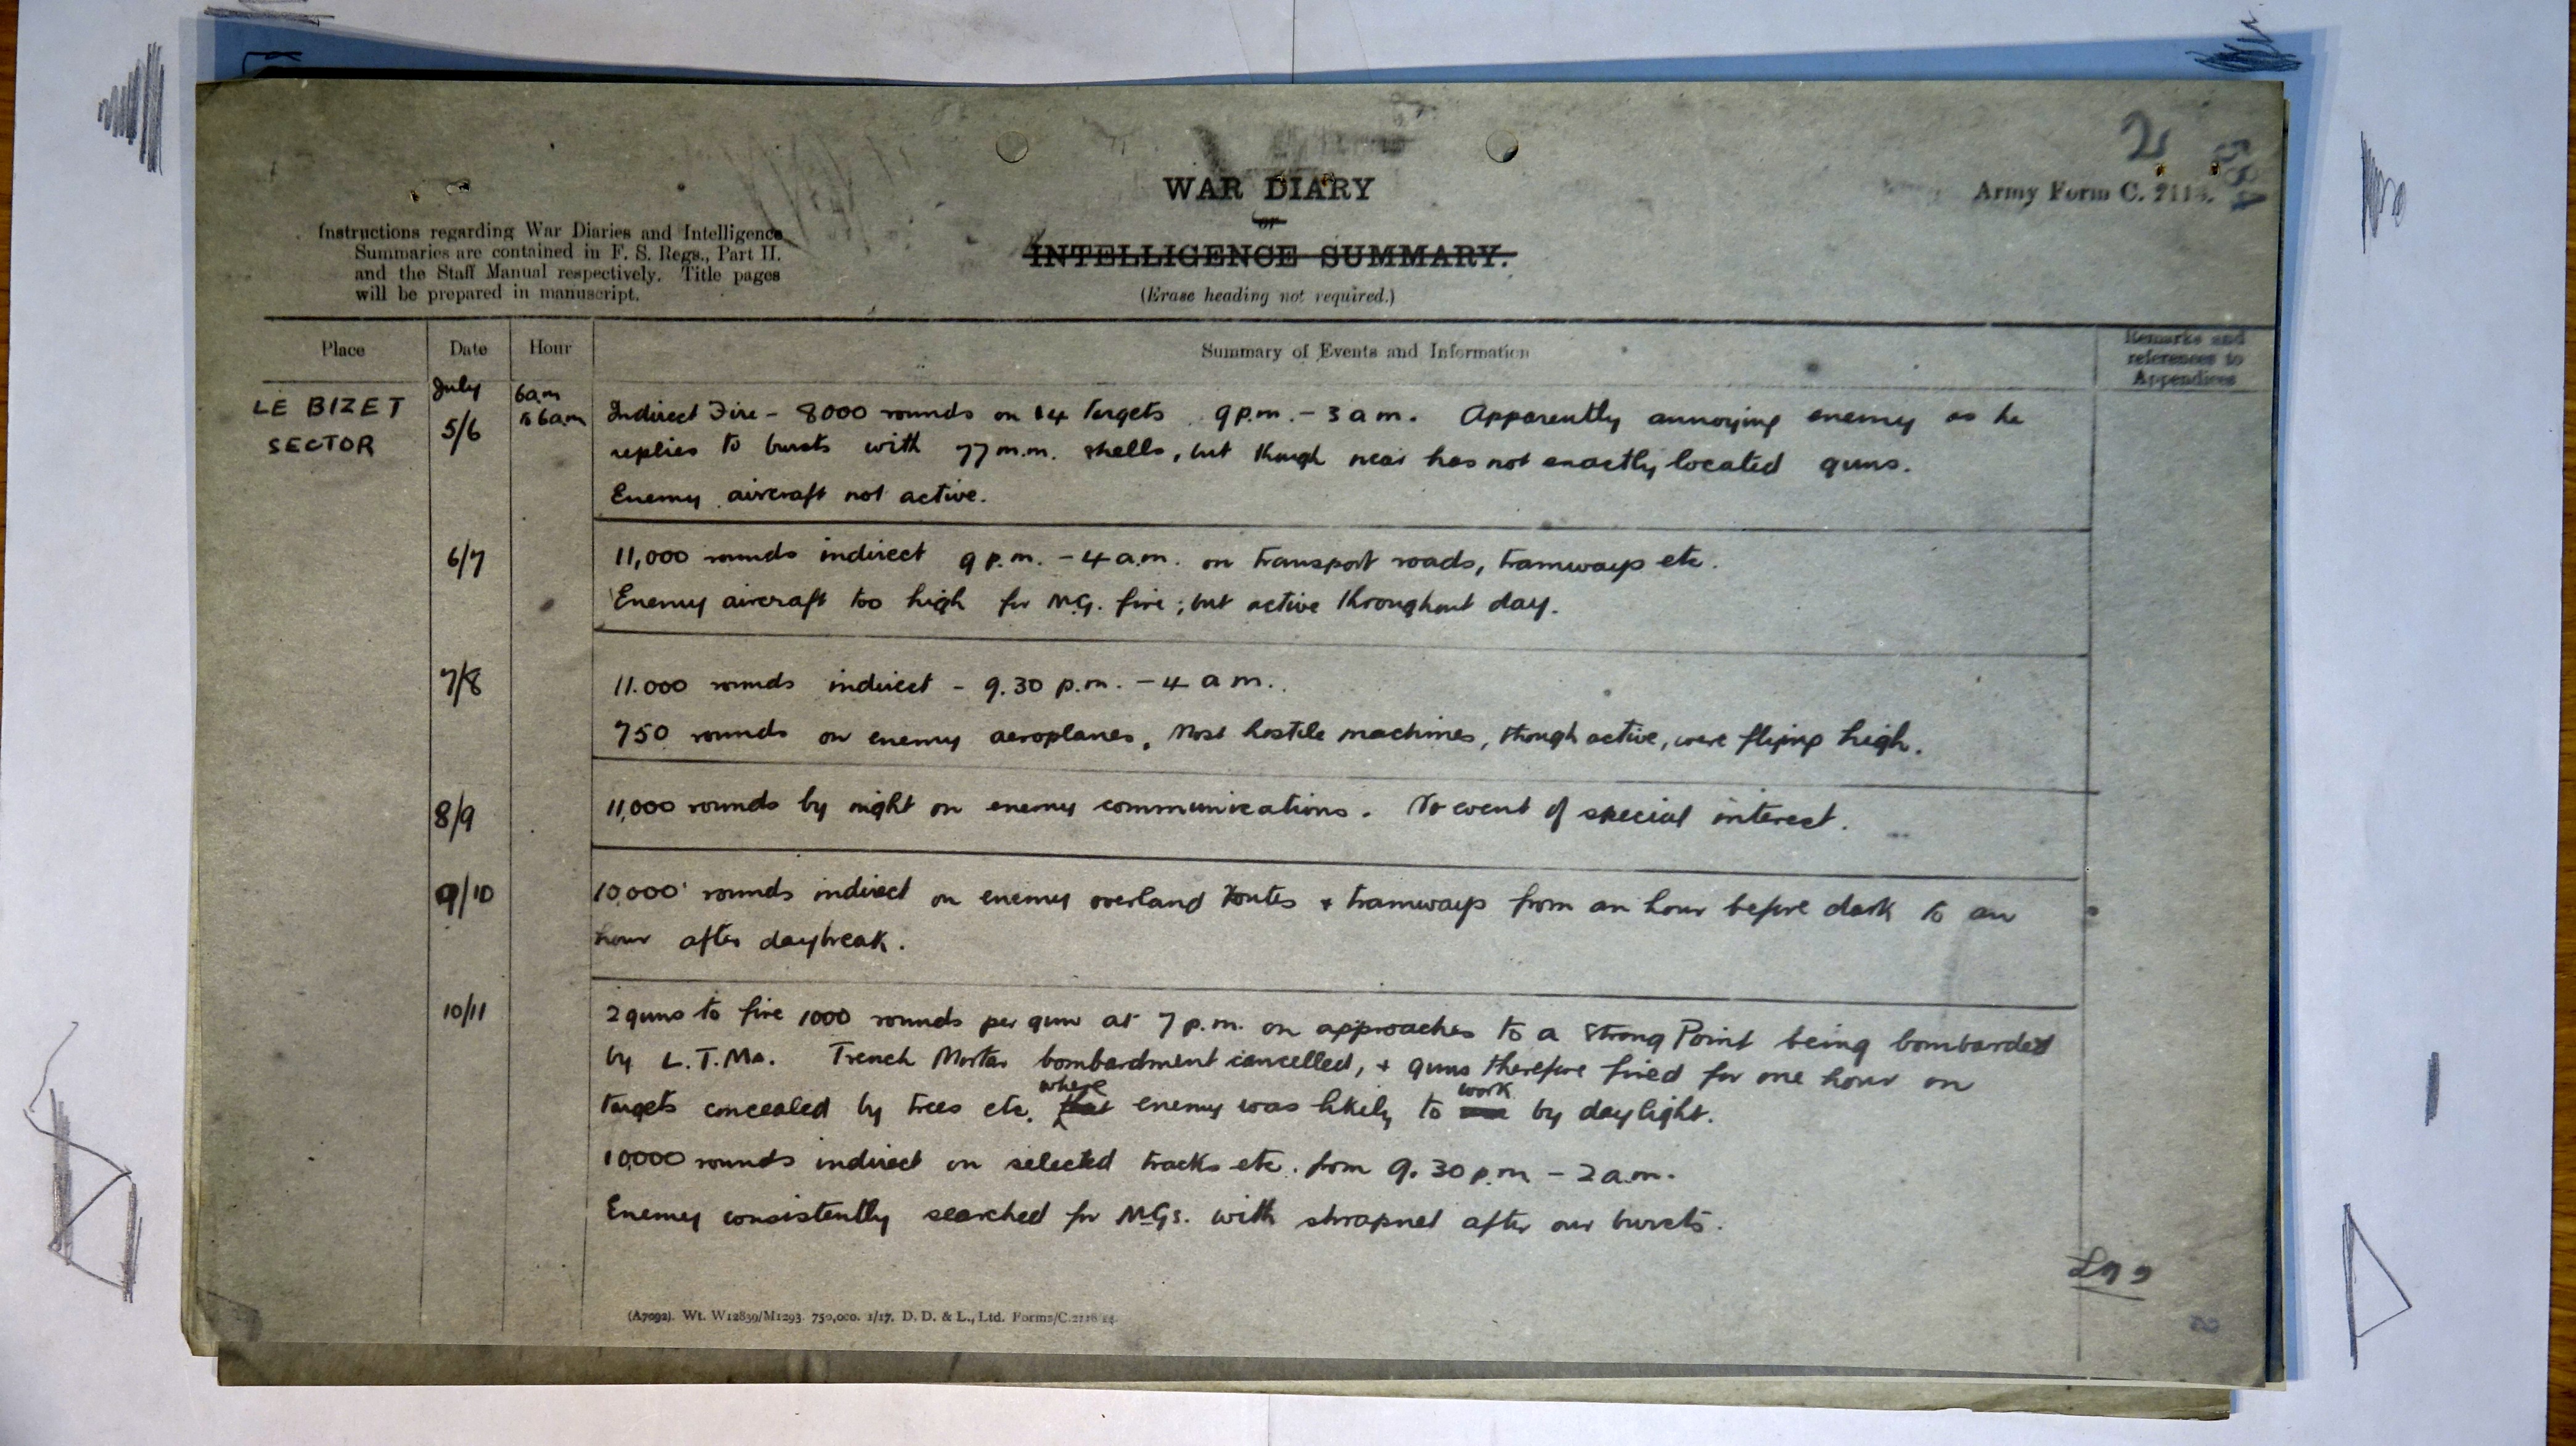 2
Army Form C. 2118.
WAR DIARY
or
INTELLIGENCE SUMMARY.
(Erase heading not required.)
Instructions regarding War Diaries and Intelligence
Summaries are contained in F. S. Regs., Part II.
and the Staff Manual respectively. Title pages
will be prepared in manuscript.
Place
Date
Hour
Summary of Events and Information
Remarks and
references to
Appendices
LE BIZET
SECTOR
July
5/6
6am
to 6am
Indirect Fire - 8000 rounds on 14 targets 9 p.m. - 3 a m. Apparently annoying enemy as he
replies to bursts with 77 m.m. shells, but though near has not exactly located guns.
Enemy aircraft not active.
6/7
11,000 rounds indirect 9 p.m. - 4 a.m. on transport roads, tramways etc.
Enemy aircraft too high for M.G. fire; but active throughout day.
7/8
11.000 rounds indirect - 9.30 p.m. - 4 a m.
750 rounds on enemy aeroplanes. Most hostile machines, though active, were flying high.
8/9
11,000 rounds by night on enemy communications. No event of special interest.
9/10
10,000 rounds indirect on enemy overland routes + tramways from an hour before dark to an
hour after daybreak.
10/11
2 guns to fire 1000 rounds per gun at 7 p.m. on approaches to a Strong Point being bombarded
by L.T.Ms. Trench Mortar bombardment cancelled, + guns therefore fired for one hour on
targets concealed by trees etc. where enemy was likely to work by daylight.
10,000 rounds indirect on selected tracks etc. from 9.30 p.m - 2 a.m.
Enemy consistently searched for M.Gs. with shrapnel after our bursts.
(A7092). Wt. W12839/M1293. 750,000. 1/17. D. D. & L., Ltd. Forms/C.2118/14.